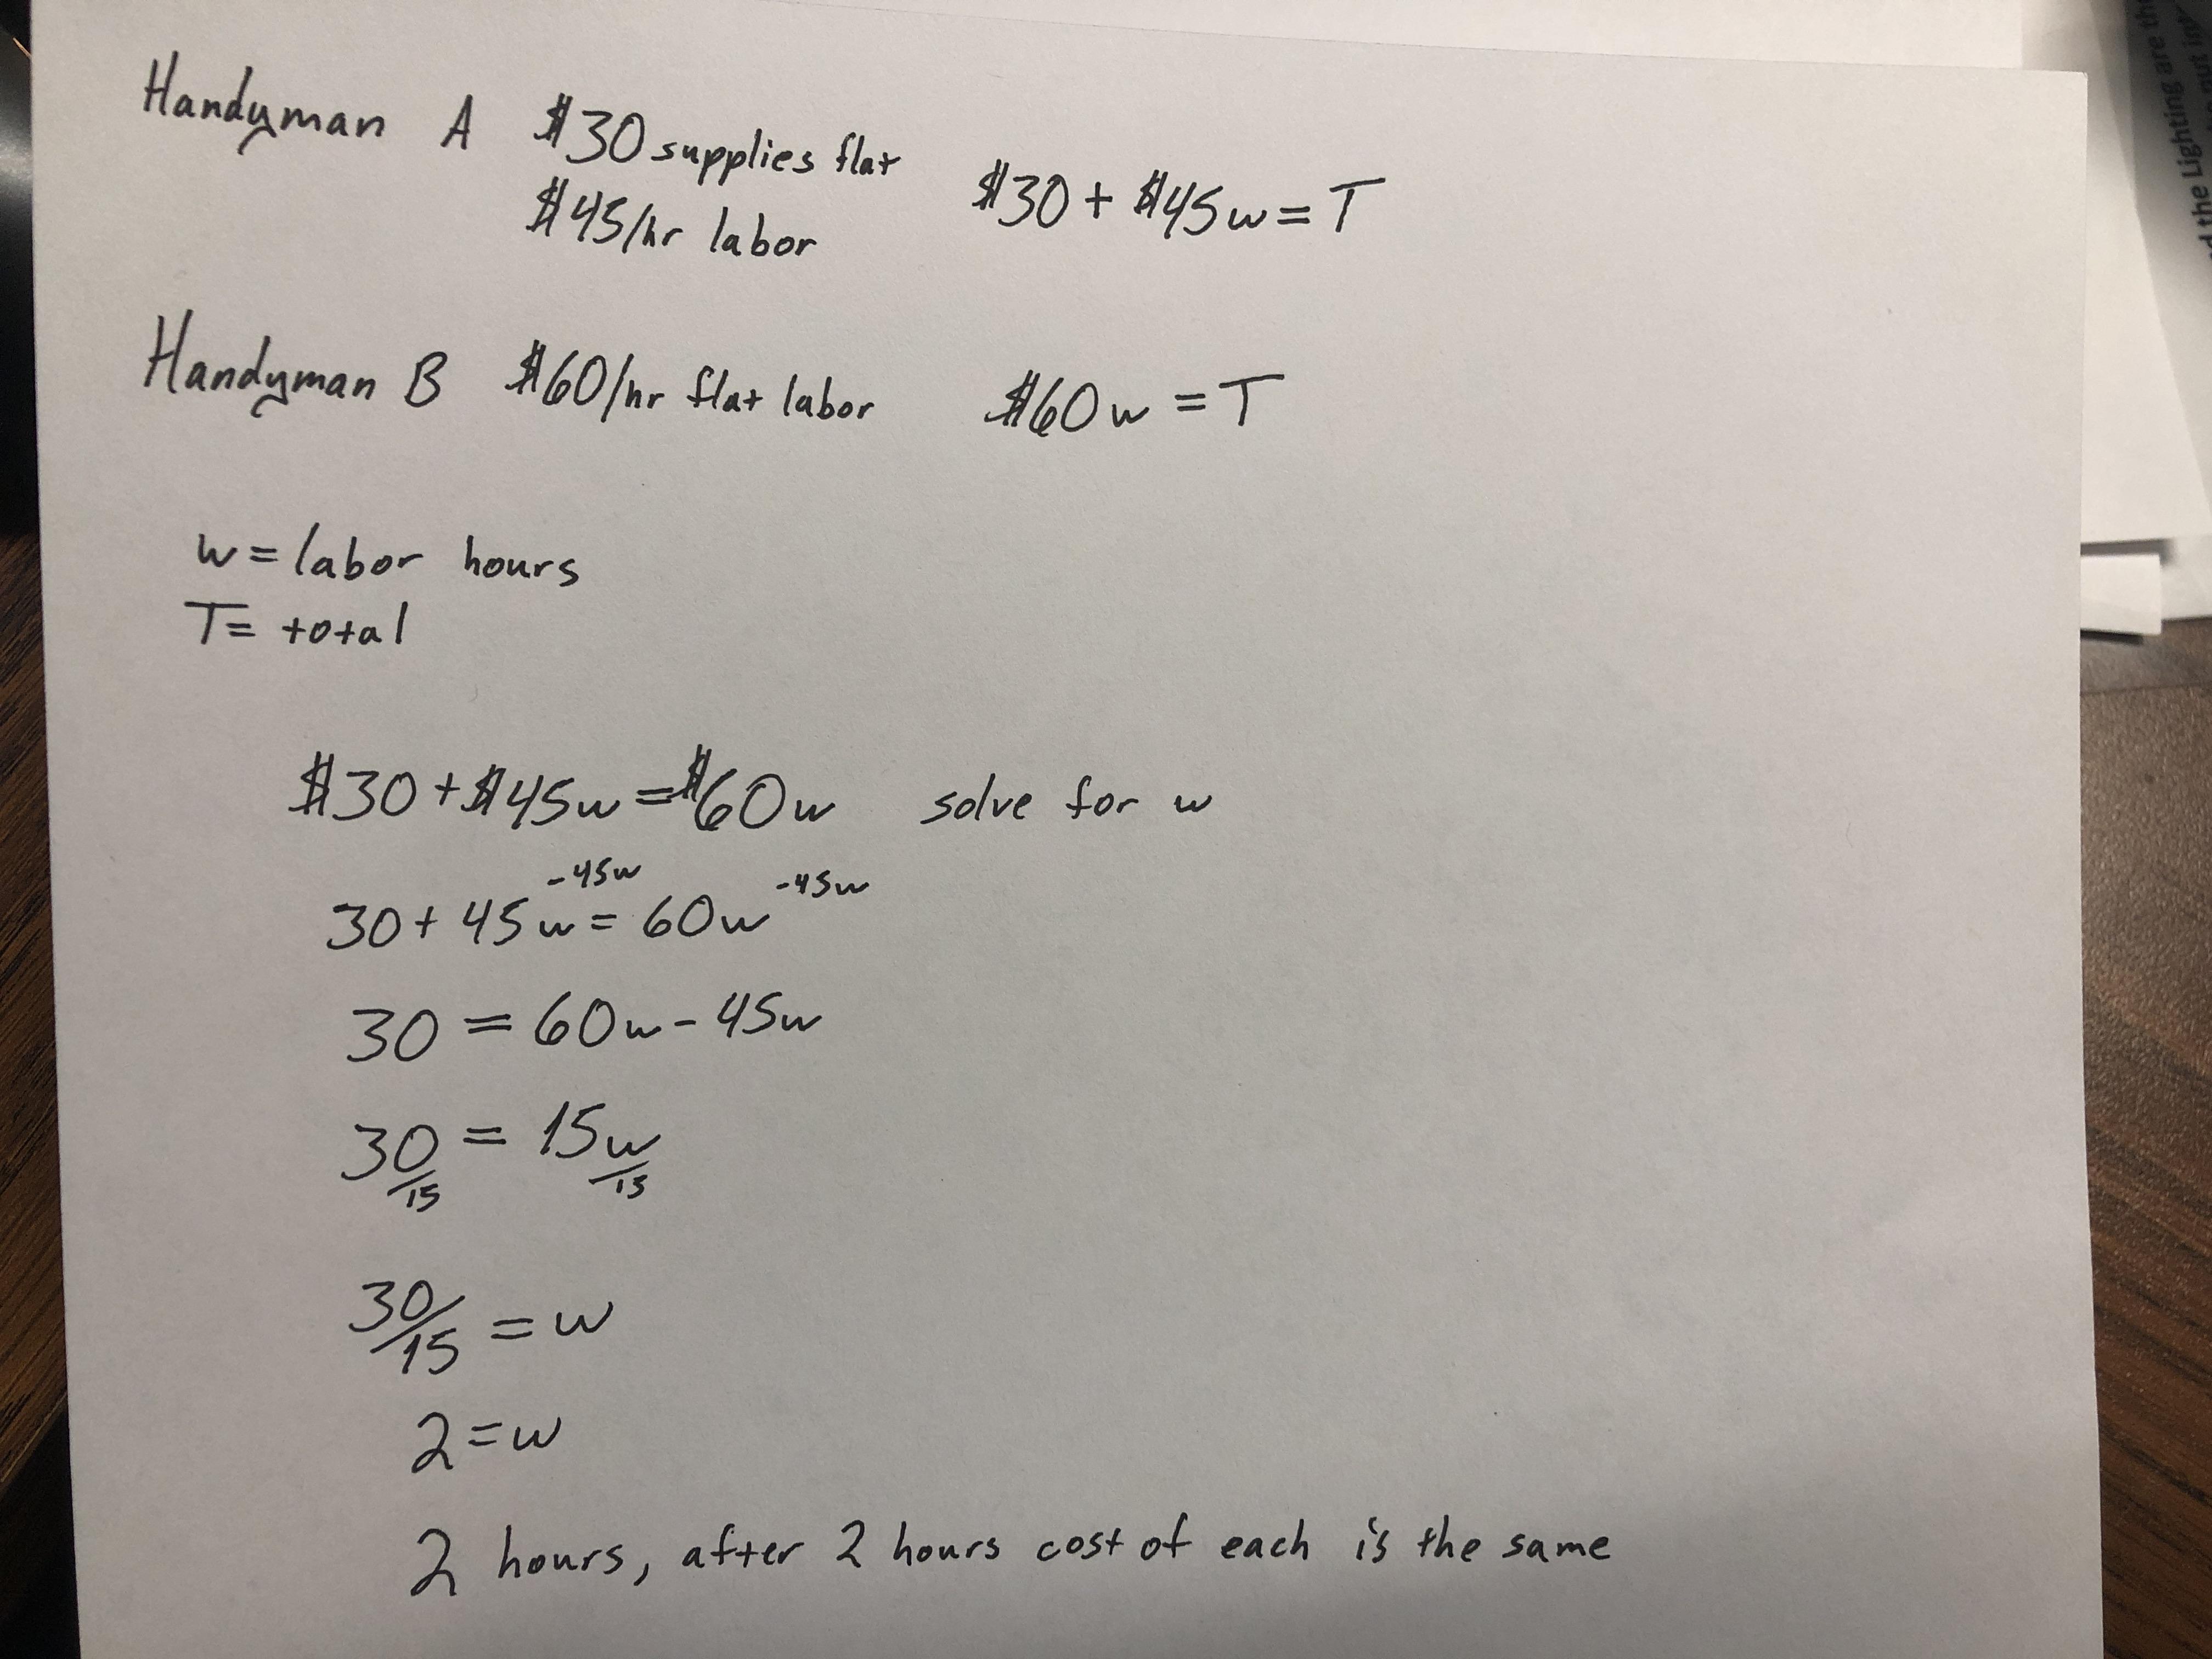 Handyman A $30 supplies flat
$45/hr labor
$30 + $45w = T
Handyman B $60/hr flat labor $60w = T
w = labor hours
T = total
$30 + $45w = $60w solve for w
-45w -45w
30 + 45w = 60w
30 = 60w - 45w
30 = 15w
/15 /15
30/15 = w
2 = w
2 hours, after 2 hours cost of each is the same
d the Lighting are the